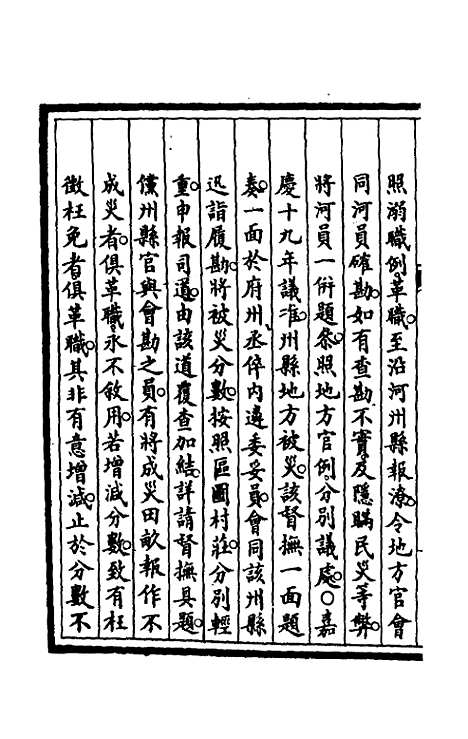 照溺職例。革職。至沿河州縣報潦。令地方官會
同河員確勘。如有查勘不實。及隱瞞民災等弊。
將河員一併題叅。照地方官例。分別議處。○嘉
慶十九年議准。州縣地方被災。該督撫一面題
奏。一面於府州丞倅內。遴委妥員。會同該州縣
迅詣履勘。將被災分數。按照區圖村莊。分別輕
重。申報司道。由該道覆查加結。詳請督撫具題。
儻州縣官與會勘之員。有將成災田畝報作不
成災者。俱革職。永不敘用。若增減分數。致有枉
徵枉免者。俱革職。其非有意增減。止於分數不